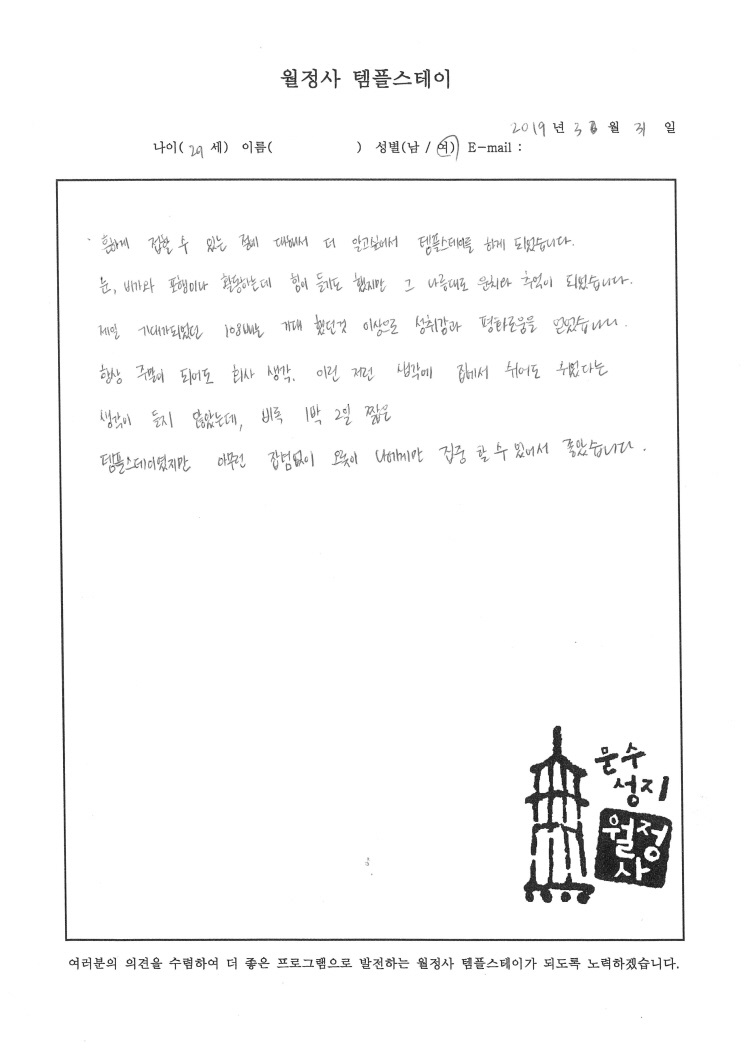 월정사 템플스테이
2019 년 3 월 31 일
나이( 29 세) 이름( ) 성별(남 / 여) E-mail :
흔하게 접할 수 있는 절에 대해서 더 알고싶어서 템플스테이를 하게 되었습니다.
눈, 비가와 포행이나 활동하는데 힘이 들기도 했지만 그 나름대로 운치와 추억이 되었습니다.
제일 기대가되었던 108배는 기대 했던것 이상으로 성취감과 평화로움을 얻었습니다.
항상 주말이 되어도 회사 생각, 이런 저런 생각에 집에서 쉬어도 쉬었다는
생각이 들지 않았는데, 비록 1박 2일 짧은
템플스테이였지만 아무런 잡념없이 오롯이 나에게만 집중 할 수 있어서 좋았습니다.
문수
성지
월정
사
여러분의 의견을 수렴하여 더 좋은 프로그램으로 발전하는 월정사 템플스테이가 되도록 노력하겠습니다.